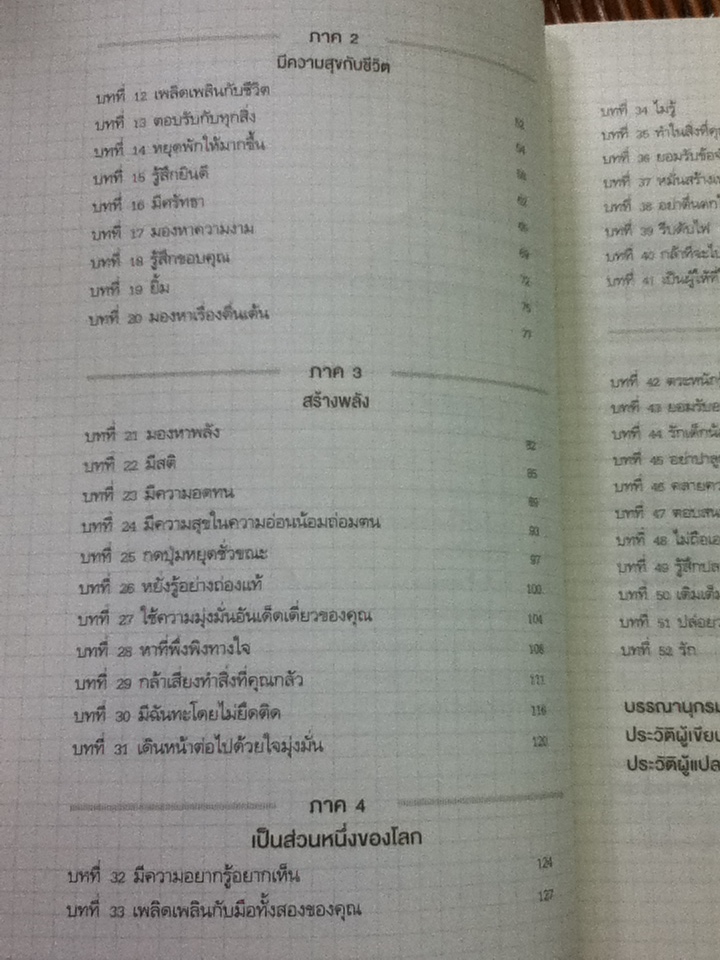 ภาค 2
มีความสุขกับชีวิต
บทที่ 12 เพลิดเพลินกับชีวิต 52
บทที่ 13 ตอบรับกับทุกสิ่ง 54
บทที่ 14 หยุดพักให้มากขึ้น 58
บทที่ 15 รู้สึกยินดี 62
บทที่ 16 มีศรัทธา 65
บทที่ 17 มองหาความงาม 69
บทที่ 18 รู้สึกขอบคุณ 72
บทที่ 19 ยิ้ม 75
บทที่ 20 มองหาเรื่องตื่นเต้น 77
ภาค 3
สร้างพลัง
บทที่ 21 มองหาพลัง 82
บทที่ 22 มีสติ 85
บทที่ 23 มีความอดทน 89
บทที่ 24 มีความสุขในความอ่อนน้อมถ่อมตน 93
บทที่ 25 กดปุ่มหยุดชั่วขณะ 97
บทที่ 26 หยั่งรู้อย่างถ่องแท้ 100
บทที่ 27 ใช้ความมุ่งมั่นอันเด็ดเดี่ยวของคุณ 104
บทที่ 28 หาที่พึ่งพิงทางใจ 108
บทที่ 29 กล้าเสี่ยงทำสิ่งที่คุณกลัว 111
บทที่ 30 มีฉันทะโดยไม่ยึดติด 116
บทที่ 31 เดินหน้าต่อไปด้วยใจมุ่งมั่น 120
ภาค 4
เป็นส่วนหนึ่งของโลก
บทที่ 32 มีความอยากรู้อยากเห็น 124
บทที่ 33 เพลิดเพลินกับมือทั้งสองของคุณ 127
บทที่ 34 ไม่รู้
บทที่ 35 ทำในสิ่งที่
บทที่ 36 ยอมรับ
บทที่ 37 หมั่นสร้าง
บทที่ 38 อย่าตื่นตก
บทที่ 39 รีบดับไฟ
บทที่ 40 กล้าที่จะ
บทที่ 41 เป็นผู้ให้ที่
บทที่ 42 ตระหนัก
บทที่ 43 ยอมรับ
บทที่ 44 รักเด็ก
บทที่ 45 อย่าปา
บทที่ 46 คลาย
บทที่ 47 ตอบ
บทที่ 48 ไม่ถือ
บทที่ 49 รู้สึก
บทที่ 50 เติมเต็ม
บทที่ 51 ปล่อย
บทที่ 52 รัก
บรรณานุกรม
ประวัติผู้เขียน
ประวัติผู้แปล